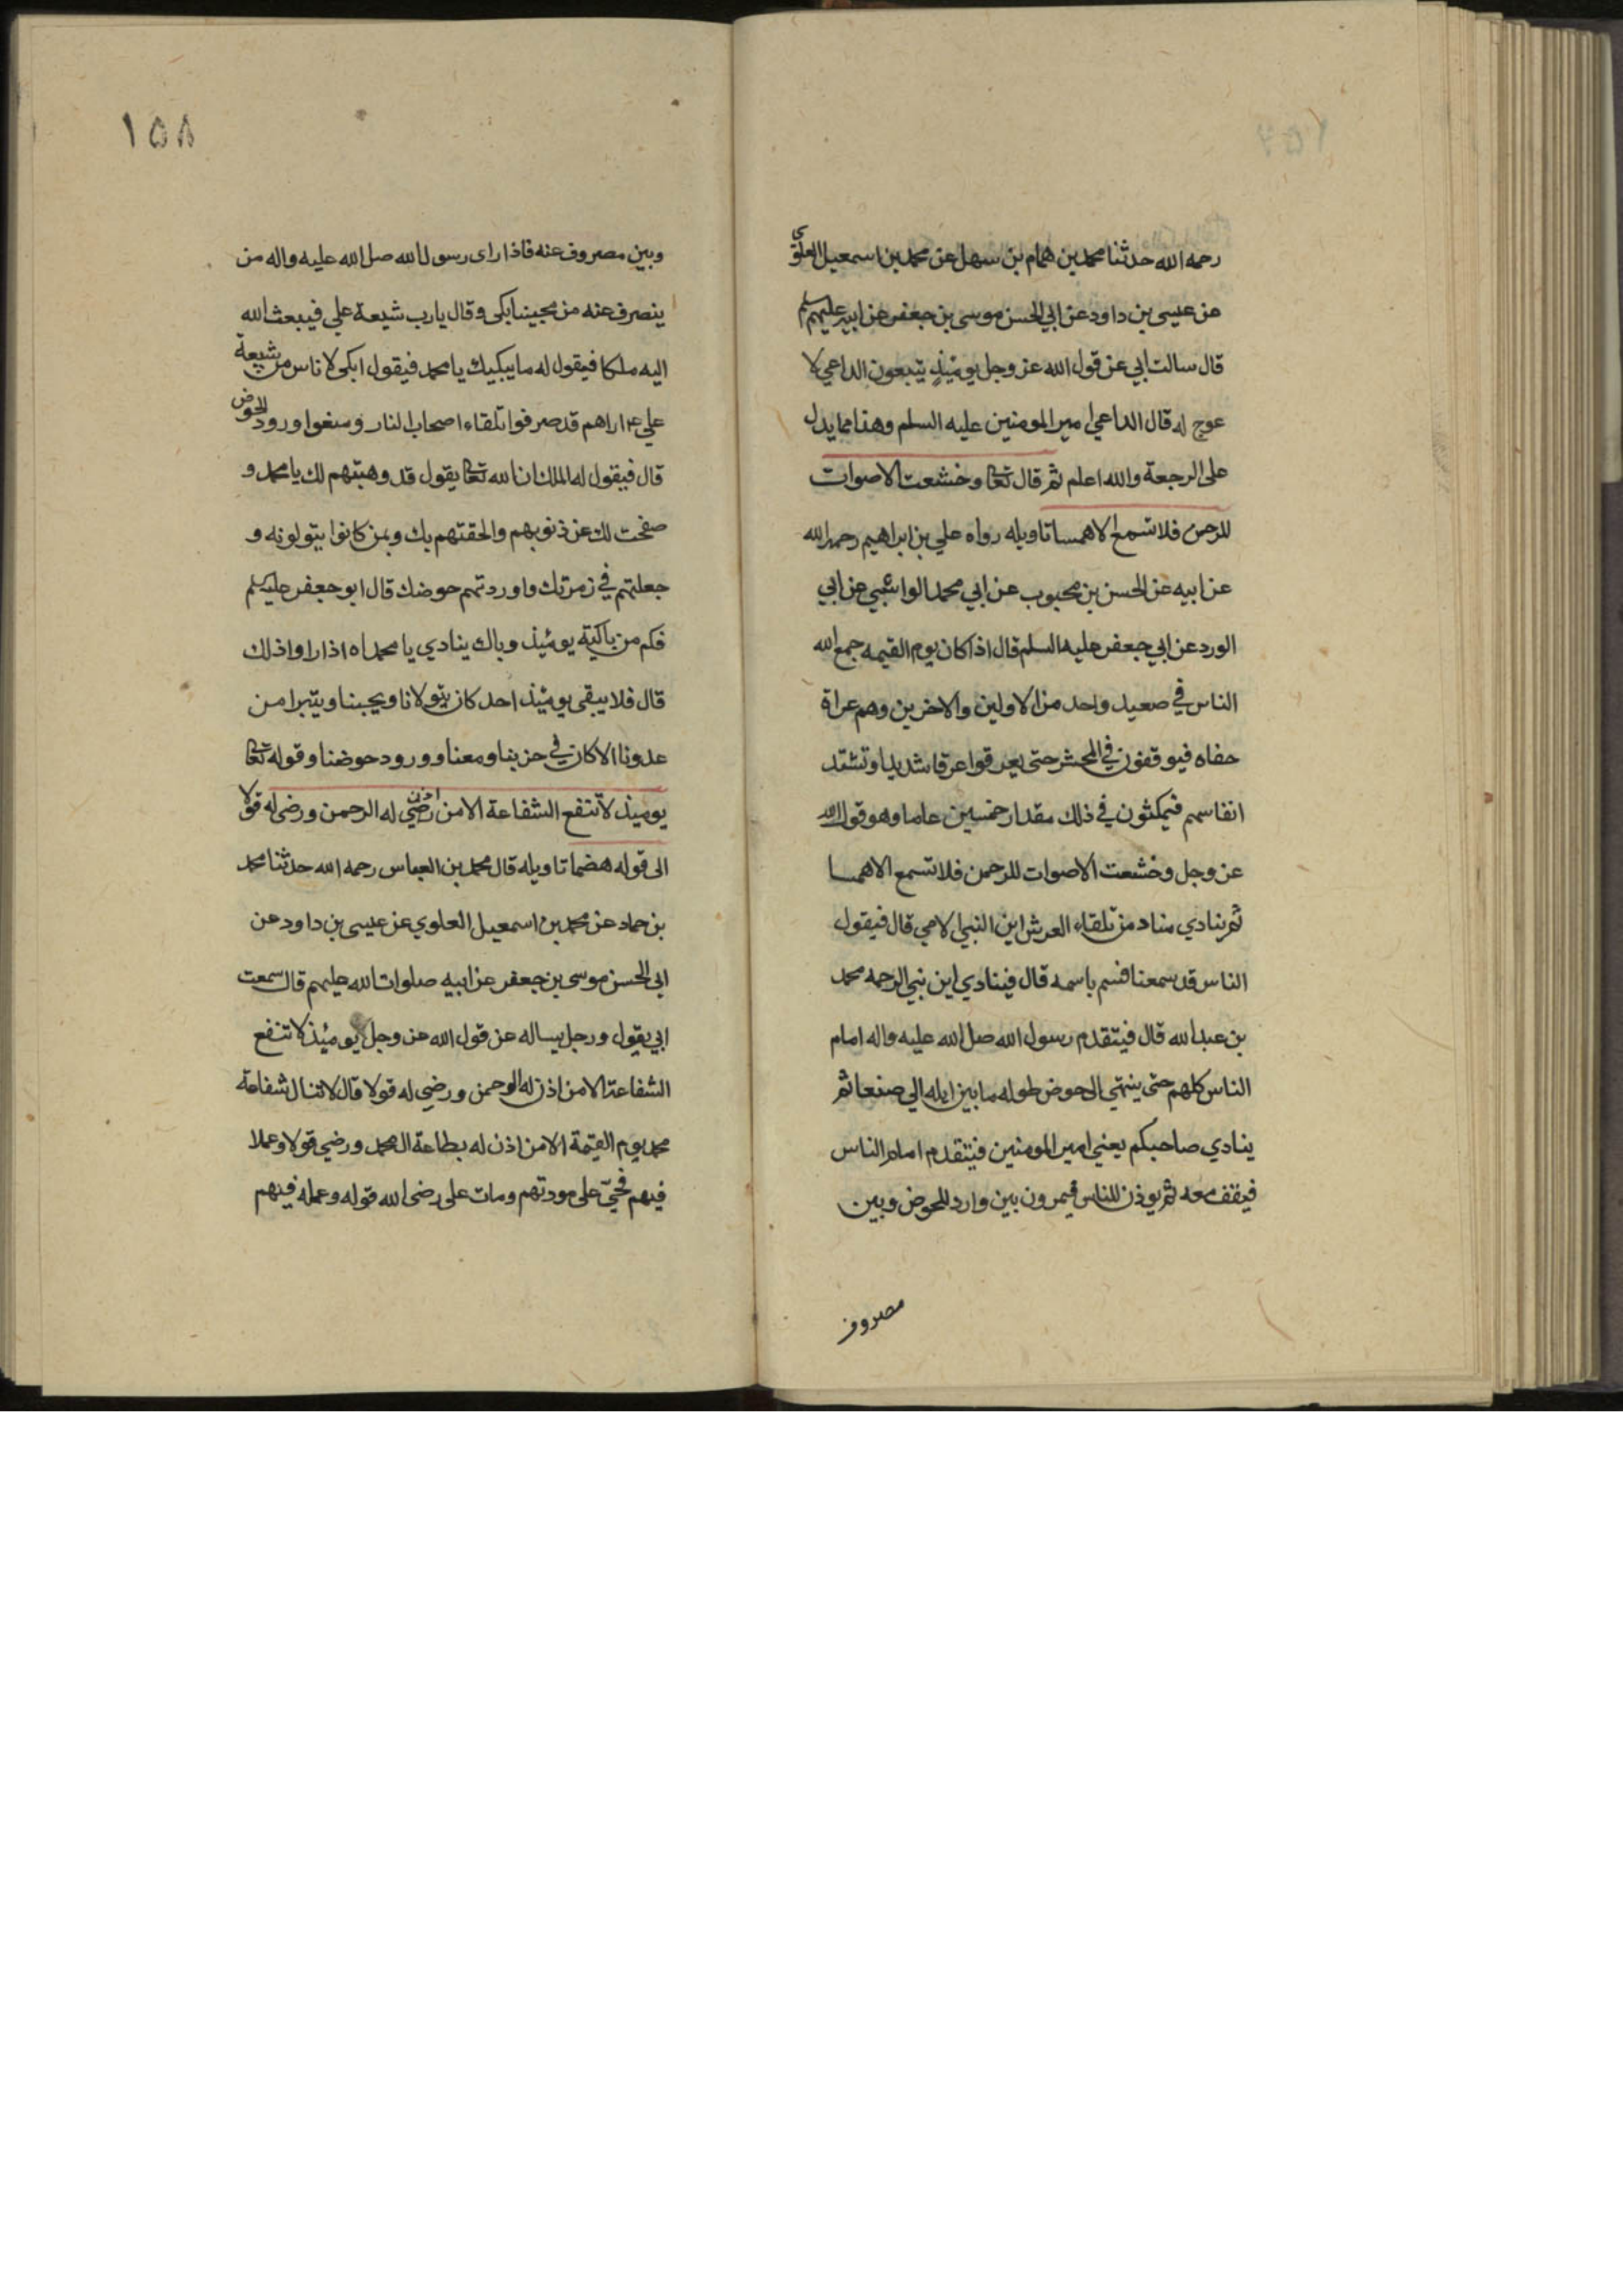 رحمه الله حدثنا محمد بن همام بن سهل عن محمد بن اسمعيل العلوي
عن عيسى بن داود عن ابي الحسن موسى بن جعفر عن ابيه عليهم السلم
قال سالت ابي عن قول الله عز وجل يومئذ يتبعون الداعي لا
عوج له قال الداعي امير المومنين عليه السلم وهذا مما يدل
على الرجعة والله اعلم ثم قال تعالى وخشعت الاصوات
للرحمن فلا تسمع الا همسا تاويله رواه علي بن ابراهيم رحمه الله
عن ابيه عن الحسن بن محبوب عن ابي محمد الوابشي عن ابي
الورد عن ابي جعفر عليه السلم قال اذا كان يوم القيمه جمع الله
الناس في صعيد واحد من الاولين والاخرين وهم عراة
حفاه فيوقفون في المحشر حتى يعرقوا عرقا شديدا وتشتد
انفاسهم فيمكثون في ذلك مقدار خمسين عاما وهو قول الله
عز وجل وخشعت الاصوات للرحمن فلا تسمع الا همسا
ثم ينادي مناد من تلقاء العرش اين النبي الامي قال فيقول
الناس قد سمعنا فسم باسمه قال فينادي اين نبي الرحمه محمد
بن عبد الله قال فيتقدم رسول الله صلى الله عليه واله امام
الناس كلهم حتى ينتهي الى حوض طوله ما بين ايله الى صنعا ثم
ينادي صاحبكم يعني امير المومنين فيتقدم امام الناس
فيقف معه ثم يوذن للناس فيمرون بين وارد للحوض وبين
مصروف
١٥٨
وبين مصروف عنه فاذا راى رسول الله صلى الله عليه واله من
ينصرف عنه من محبينا بكى وقال يا رب شيعة علي فيبعث الله
اليه ملكا فيقول له ما يبكيك يا محمد فيقول ابكي لاناس من شيعة
علي اراهم قد صرفوا تلقاء اصحاب النار ومنعوا ورود الحوض
قال فيقول له الملك ان الله تعالى يقول قد وهبتهم لك يا محمد و
صفحت لك عن ذنوبهم والحقتهم بك وبمن كانوا يتولونه و
جعلتهم في زمرتك واوردتهم حوضك قال ابو جعفر عليه السلم
فكم من باكية يومئذ وباك ينادي يا محمداه اذا راوا ذلك
قال فلا يبقى يومئذ احد كان يتولانا ويحبنا ويتبرا من
عدونا الا كان في حزبنا ومعنا وورود حوضنا وقوله تعالى
يوميذ لا تنفع الشفاعة الا من اذن رضي له الرحمن ورضي له قولا
الى قوله هضما تاويله قال محمد بن العباس رحمه الله حدثنا محمد
بن حماد عن محمد بن اسمعيل العلوي عن عيسى بن داود عن
ابي الحسن موسى بن جعفر عن ابيه صلوات الله عليهم قال سمعت
ابي يقول ورجل يساله عن قول الله عز وجل يومئذ لا تنفع
الشفاعة الا من اذن له الرحمن ورضي له قولا قال لا تنال شفاعة
محمد يوم القيمة الا من اذن له بطاعة ال محمد ورضي قولا وعملا
فيهم فحيي على مودتهم ومات على رضى الله قوله وعمله فيهم